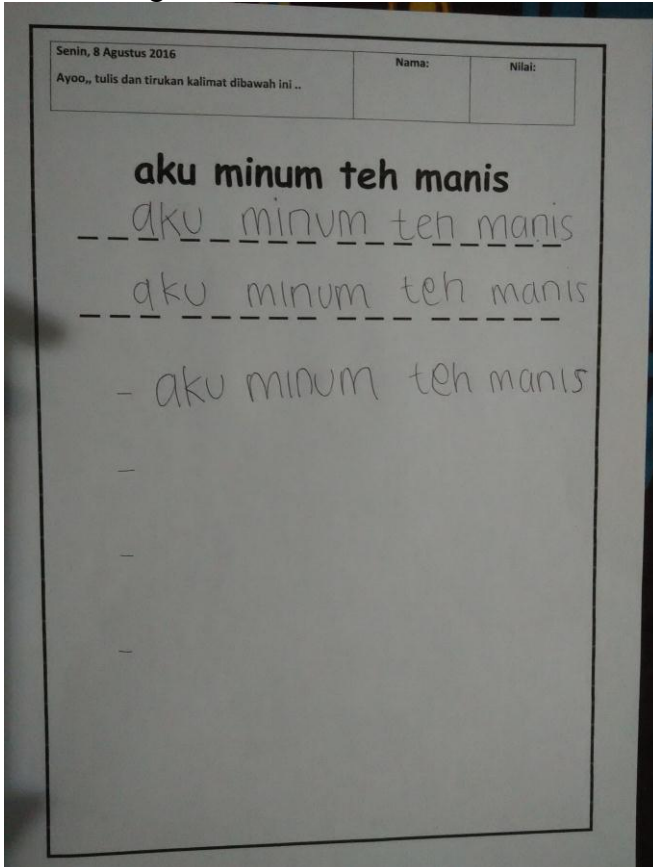 Senin, 8 Agustus 2016
Ayoo,, tulis dan tirukan kalimat dibawah ini ..
Nama:
Nilai:
aku minum teh manis
aku minum teh manis
aku minum teh manis
- aku minum teh manis
-
-
-